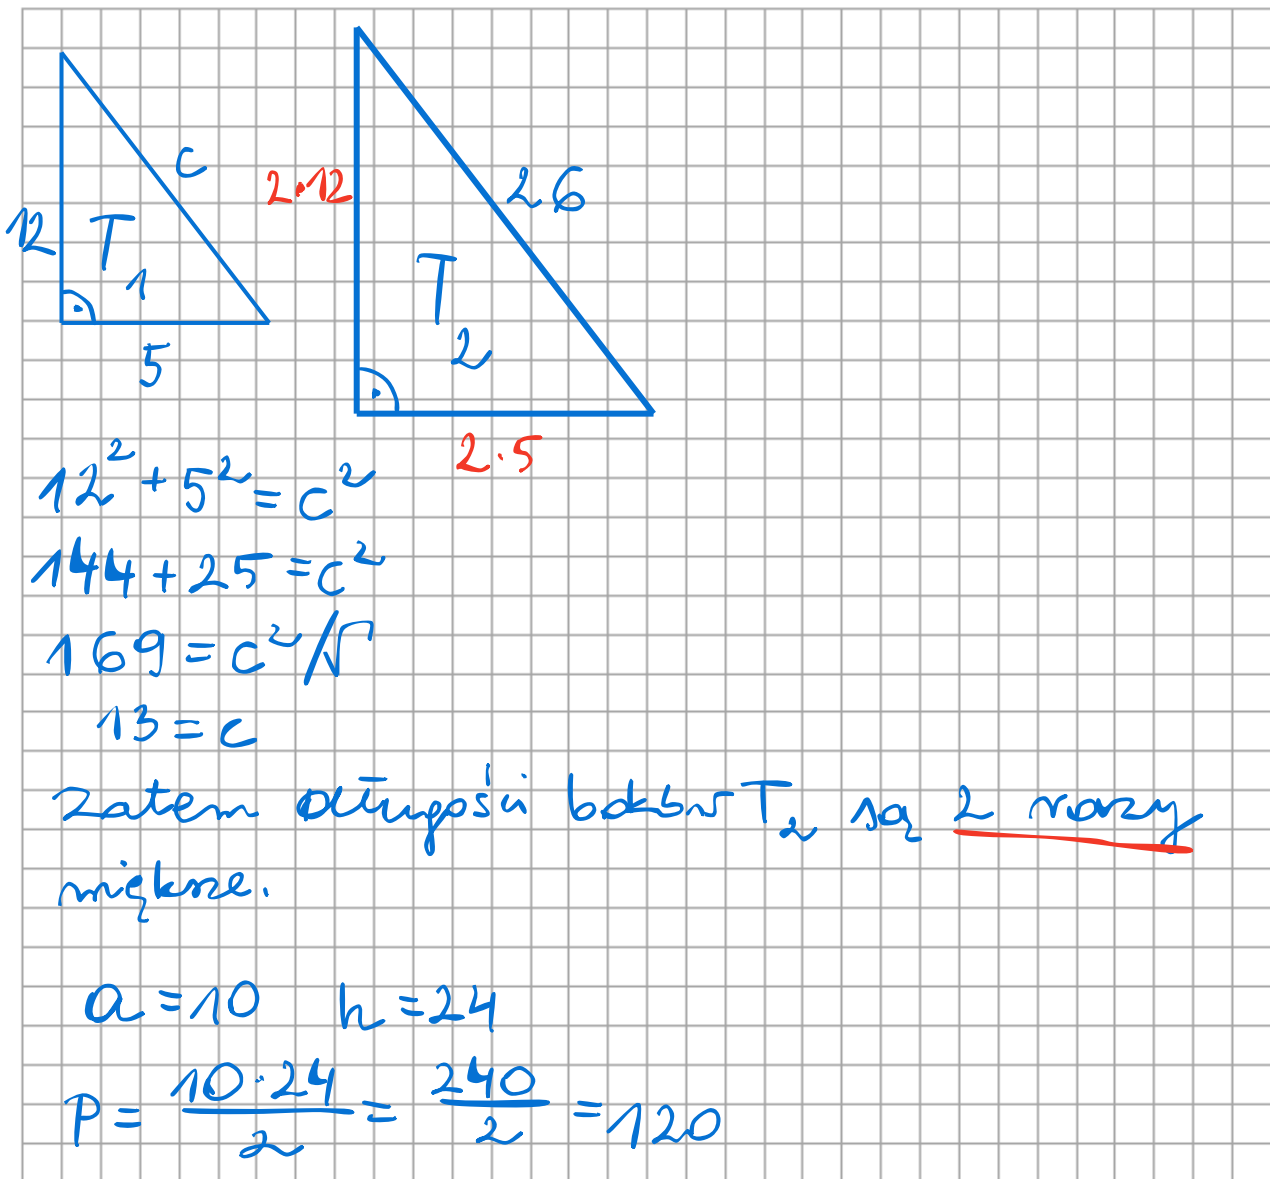 12
T₁
c
5
2·12
T₂
26
2·5
12² + 5² = c²
144 + 25 = c²
169 = c² /√
13 = c
zatem długości boków T₂ są 2 razy
większe.
a = 10 h = 24
P = \frac{10·24}{2} = \frac{240}{2} = 120